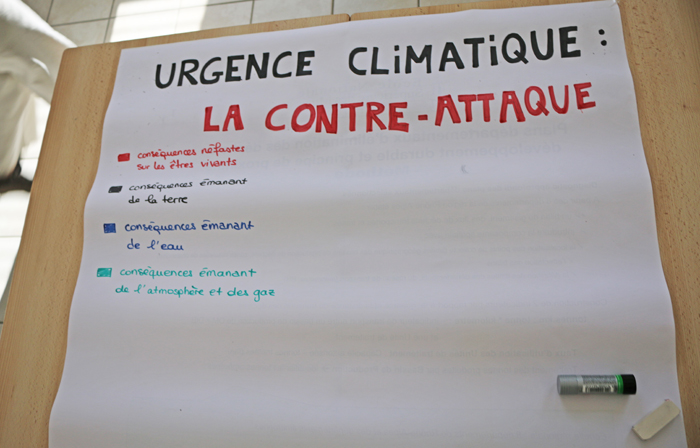 URGENCE CLiMATiQUE :
LA CONTRE-ATTAQUE
conséquences néfastes
sur les êtres vivants
conséquences émanant
de la terre
conséquences émanant
de l'eau
conséquences émanant
de l'atmosphère et des gaz